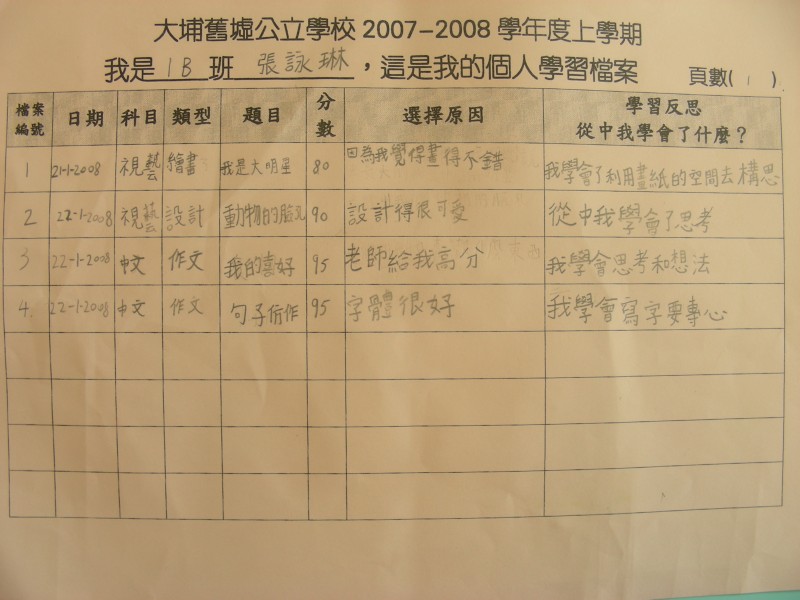 大埔舊墟公立學校 2007-2008 學年度上學期
我是 1B 班 張詠琳，這是我的個人學習檔案 頁數( 1 )
檔案編號 日期 科目 類型 題目 分數 選擇原因 學習反思 從中我學會了什麼？
1 21-1-2008 視藝 繪畫 我是大明星 80 因為我覺得畫得不錯 我學會了利用畫紙的空間去構思
2 22-1-2008 視藝 設計 動物的臉孔 90 設計得很可愛 從中我學會了思考
3 22-1-2008 中文 作文 我的喜好 95 老師給我高分 我學會思考和想法
4. 22-1-2008 中文 作文 句子仿作 95 字體很好 我學會寫字要專心